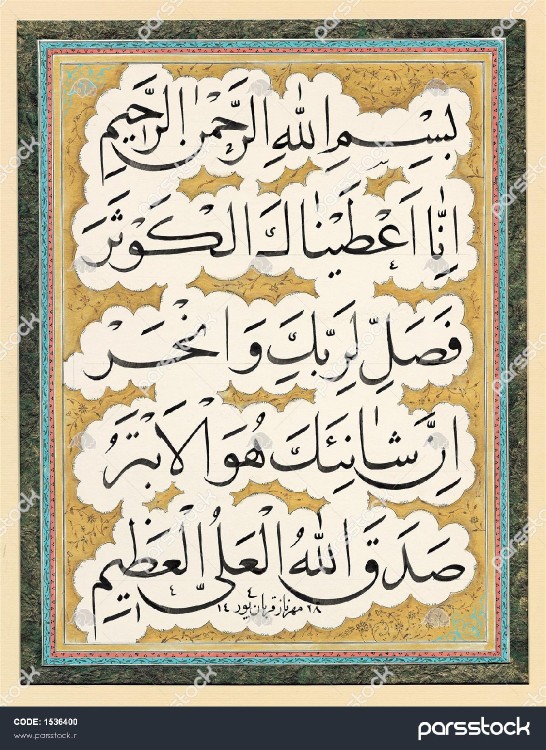 بِسْمِ اللهِ الرَّحْمٰنِ الرَّحیمِ
اِنّٰا اَعْطَیْنٰاكَ الْكَوْثَرَ
فَصَلِّ لِرَبِّكَ وَ انْحَرْ
اِنَّ شٰانِئَكَ هُوَ الْاَبْتَرُ
صَدَقَ اللهُ الْعَلیُّ الْعَظیمِ
مهرناز قربان‌پور
CODE: 1536400
www.parsstock.ir
parsstock